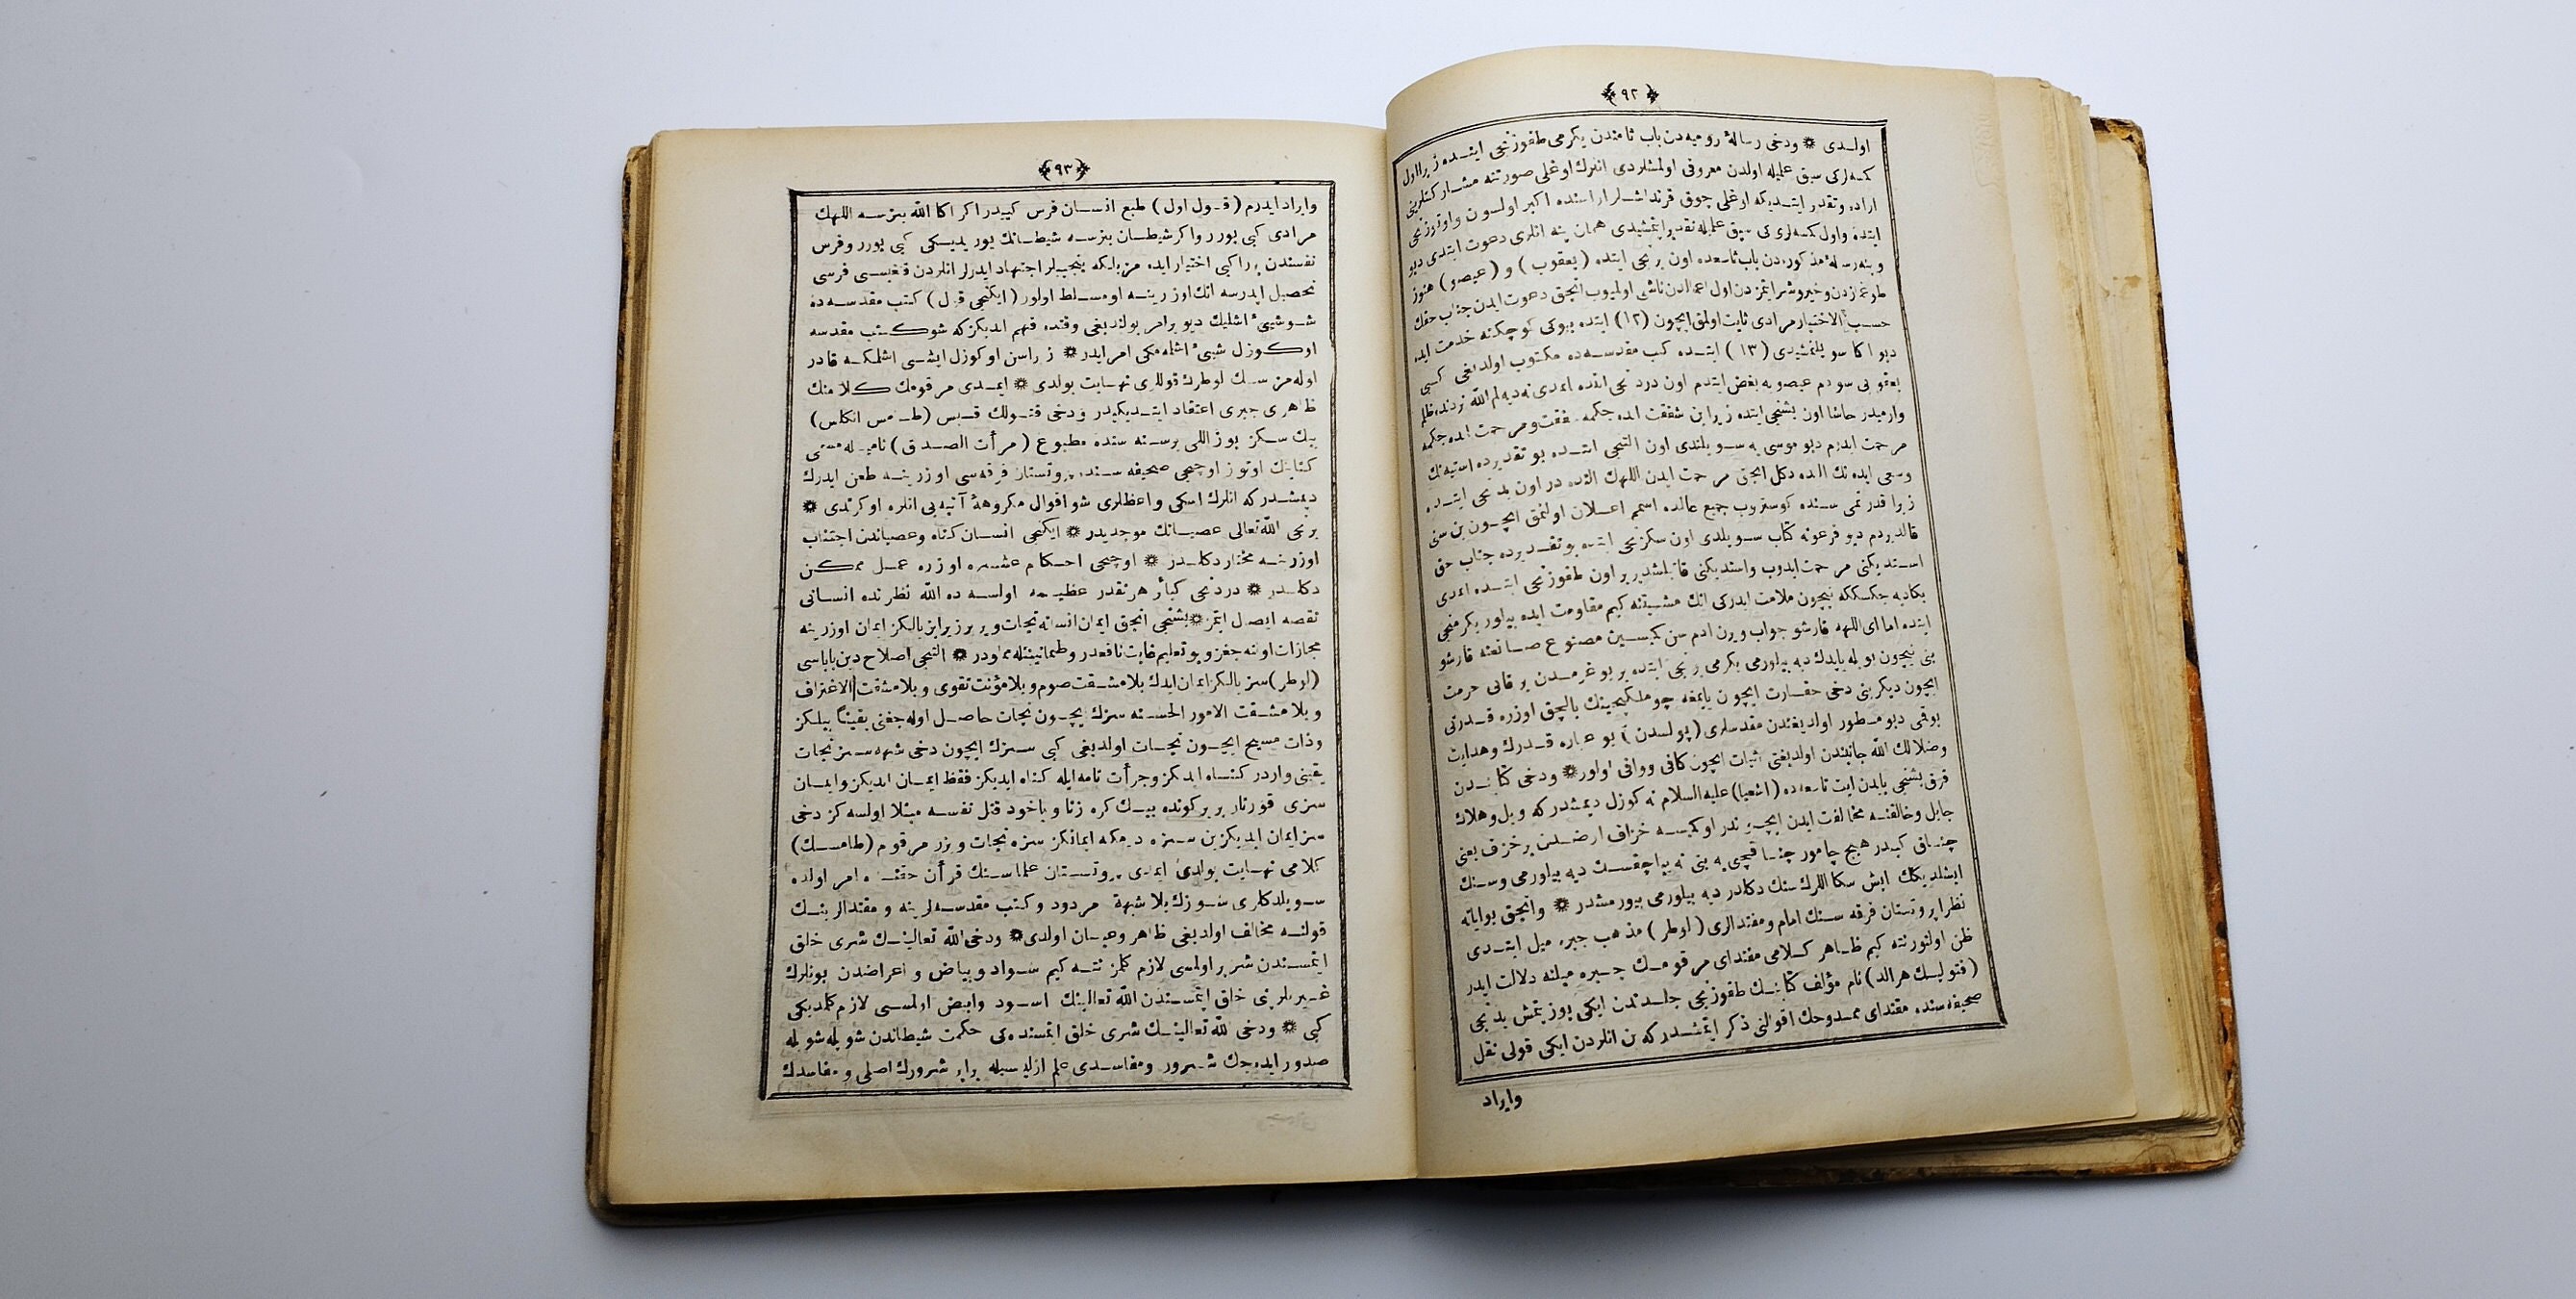 ﴿ ٩٢ ﴾
اولدی ❋ ودخی رسالهٔ رومیه‌دن باب ثامندن یکرمی طقوزنجی ایتده زیرا اول
کمسه‌لرکی سبق علمیله اولدن معروفی اولمشلردی انلرك اوغلی صورتنه مشارکتلرینی
اراده وتقدر ایتدیکه اوغلی چوق قرنداشلر اراسنده اکبر اولسون واوتوزنجی
ایتده واول کمسه‌لرکی سبق علمیله تقدیر ایتمشیدی همان ینه انلری دعوت ایتدی دیو
وینه رسالهٔ مذکوره‌دن باب تاسعده اون برنجی ایتده (یعقوب) و (عیصو) هنوز
طوغمازدن وخیر وشر ایتمزدن اول اعمالدن ناشی اولمیوب انجق دعوت ایدن جناب حقك
حسب الاختیار مرادی ثابت اولمق ایچون (١٢) ایتده بیوکی کوچکنه خدمت ایده
دیو اکا سویلنمشیدی (١٣) ایتده کتب مقدسه‌ده مکتوب اولدیغی کبی
یعقوبی سودم عیصویه بغض ایتدم اون دردنجی ایتده امدی نه دیه‌لم الله نزدنده ظلم
وارمیدر حاشا اون بشنجی ایتده زیرا بن شفقت ایده‌جکمه شفقت ومرحمت ایده‌جکمه
مرحمت ایدرم دیو موسی یه سویلندی اون التنجی ایتده بو تقدیرده استیه‌نك
وسعی ایده‌نك الده دکل انجق مرحمت ایدن اللهك النده‌در اون یدنجی ایتده
زیرا قدرتمی سنده کوستروب جمیع عالمده اسمم اعلان اولنمق ایچون بن سنی
قالدیردم دیو فرعونه کتاب سویلدی اون سکزنجی ایتده بو تقدیرده جناب حق
استدیکنی مرحمت ایدوب واستدیکنی قاتیلشدیریر اون طقوزنجی ایتده امدی
بکادیه جکسککه نیچون ملامت ایدرکی انك مشیتنه کیم مقاومت ایده بیلور یکرمنجی
ایتده اما ای اللهه قارشو جواب ویرن ادم سن کیمسین مصنوع صانعنه قارشو
بنی نیچون بویله یاپدك دیه بیلورمی یکرمی برنجی ایتده بر یوغرمدن بر قابی حرمت
ایچون دیکرینی دخی حقارت ایچون یاپمغه چوملکچینك بالچق اوزره قدرتی
یوقمی دیو مسطور اولدیغندن مقدسلری (پولسدن) بو عباره قدرك وهدایت
وضلالك الله جانبندن اولدیغنی اثبات ایچون کافی ووافی اولور ❋ ودخی کتابندن
قرق بشنجی بابدن ایت تاسعه‌ده (اشعیا) علیه السلام نه کوزل دیمشدرکه ویل وهلاك
جابل وخالقنه مخالفت ایدن ایچوندر اوکیمسه خزاف ارضدن بر خزف یعنی
چناق کبیدر هیچ چامور چناقچی یه بنی نه یاپاجقسك دیه بیلورمی وسنك
ایشلدیکك ایش سکا اللرك سنك دکلدر دیه بیلورمی بیورمشدر ❋ وانجق بوایاته
نظرا پروتستان فرقه سنك امام ومقتدالری (لوطر) مذهب جبره میل ایتدی
ظن اولنور نته کیم ظاهر کلامی مقتدای مرقومك جبره میلنه دلالت ایدر
(قتولیك هرالد) نام مؤلف کتابنك طقوزنجی جلدندن ایکی یوز یتمش یدنجی
صحیفه سنده مقتدای ممدوحك اقوالنی ذکر ایتمشدرکه بن انلردن ایکی قولی نقل
وایراد
﴿ ٩٣ ﴾
وایراد ایدرم (قول اول) طبع انسان فرس کبیدر اکر اکا الله بنرسه اللهك
مرادی کبی یورر واکر شیطان بنرسه شیطانك یوریدیکی کبی یورر وفرس
نفسندن براکبی اختیار ایده مز بلکه بنیجیلر اجتهاد ایدرلر انلردن قنغیسی فرسی
تحصیل ایدرسه انك اوزرینه اومسلط اولور (ایکنجی قول) کتب مقدسه ده
شوشیئ اشلیك دیو برامر بولندیغی وقتده فهم ایدیکزکه شوکتب مقدسه
اوکوزل شیئ اشله‌مکی امر ایدر ❋ زیراسن اوکوزل ایشی اشلمکه قادر
اوله‌مزسك لوطرك قوللری نهایت بولدی ❋ ایمدی مرقومك کلامنك
ظاهری جبری اعتقاد ایتدیکیدر ودخی قتولك قسیس (طامس انکلس)
بیك سکز یوز اللی بر سنه سنده مطبوع (مرأت الصدق) نامیله مسمی
کتابنك اوتوز اوچنجی صحیفه سنده پروتستان فرقه‌سی اوزرینه طعن ایدرك
دیمشدرکه انلرك اسکی واعظلری شو اقوال مکروههٔ آتیه‌یی انلره اوکرتدی ❋
برنجی الله تعالی عصیانك موجدیدر ❋ ایکنجی انسان کناه وعصیاندن اجتناب
اوزرینه مختار دکلدر ❋ اوچنجی احکام عشره اوزره عمل ممکن
دکلدر ❋ دردنجی کبائر هرنقدر عظیمه اولسه‌ده الله نظرنده انسانی
نقصه ایصال ایتمز ❋ بشنجی انجق ایمان انسانه نجات ویریر زیرا بز یالکز ایمان اوزرینه
مجازات اولنه جغز وبو تعلیم غایت نافعدر وطمانینتله مملودر ❋ التنجی اصلاح دین باباسی
(لوطر) سز یالکز ایمان ایدك بلا مشقت صوم وبلا مؤنت تقوی وبلا مشقت الاعتراف
وبلا مشقت الامور الحسنه سزك ایچون نجات حاصل اوله جغنی یقینا بیلکز
وذات مسیح ایچون نجات اولدیغی کبی سزك ایچون دخی شبهه سز نجات
یقینی واردر کناه ایدکز وجرأت تامه ایله کناه ایدیکز فقط ایمان ایدیکز وایمان
سزی قورتارر بر کونده بیك کره زنا ویاخود قتل نفسه مبتلا اولسه‌کز دخی
سز ایمان ایدیکز بن سزه دیمکه ایمانکز سزه نجات ویرر مرقوم (طامسك)
کلامی نهایت بولدی ایمدی پروتستان علماسنك قرآن حقنده امر اولده
سویلدکلری سوزك بلا شبهة مردود وکتب مقدسه‌لرینه ومقتدالرینك
قولنه مخالف اولدیغی ظاهر وعیان اولدی ❋ ودخی الله تعالینك شری خلق
ایتمسندن شریر اولمسی لازم کلمز نته کیم سواد وبیاض واعراضدن بونلرك
غیریلرینی خلق ایتمسندن الله تعالینك اسود وابیض اولمسی لازم کلمدیکی
کبی ❋ ودخی الله تعالینك شری خلق ایتمسنده‌کی حکمت شیطاندن شویله شویله
صدور ایده‌جك شرور ومفاسدی علم ازلیسیله بیلور شرورك اصلی ومفاسدك